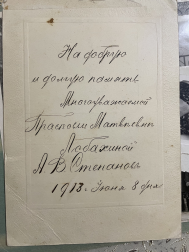 На добрую
и долгую память
Многоуважаемой
Прасковьи Матвеевны
Лобахиной
А. В. Степанов
1913. Июня 8 дня